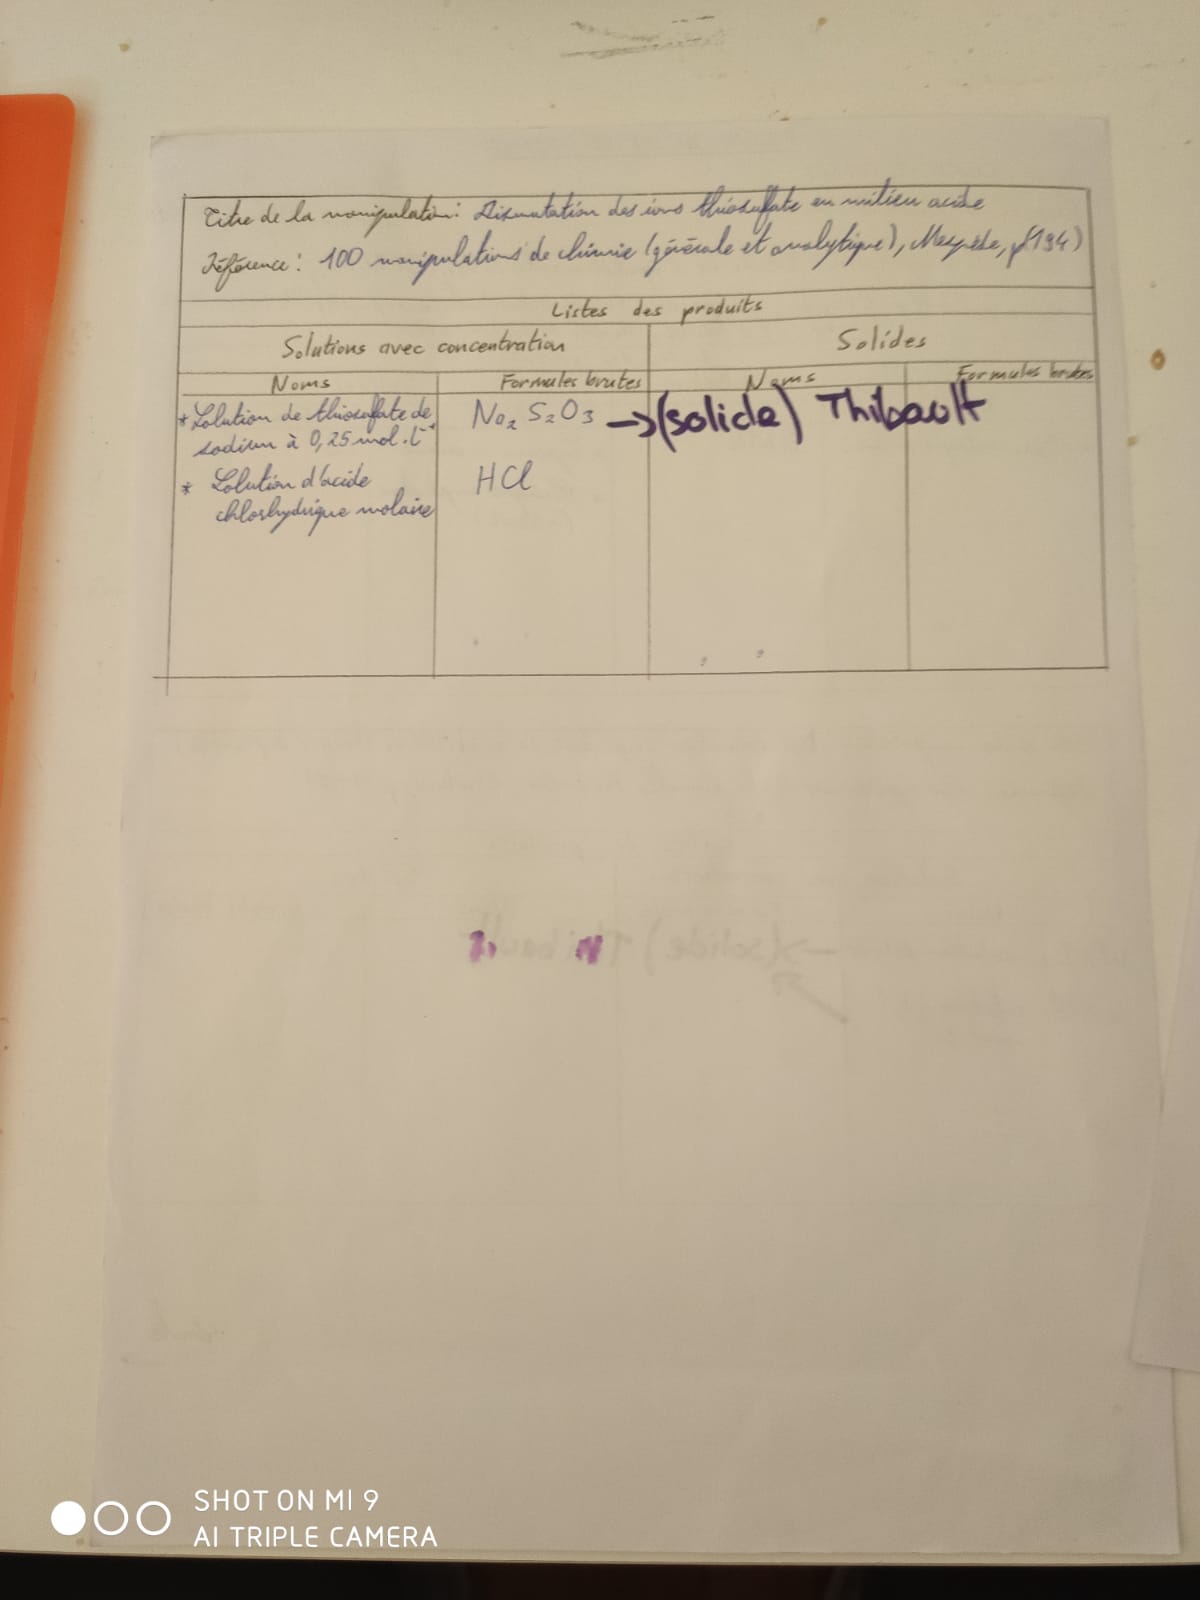 Titre de la manipulation: Dismutation des ions thiosulfate en milieu acide
Référence: 100 manipulations de chimie (générale et analytique), Mesplède, p(194)
Listes des produits
Solutions avec concentration Solides
Noms Formules brutes Noms Formules brutes
* Solution de thiosulfate de Na₂S₂O₃ →(solide) Thibault
sodium à 0,25 mol.L⁻¹
* Solution d'acide HCl
chlorhydrique molaire
SHOT ON MI 9
AI TRIPLE CAMERA